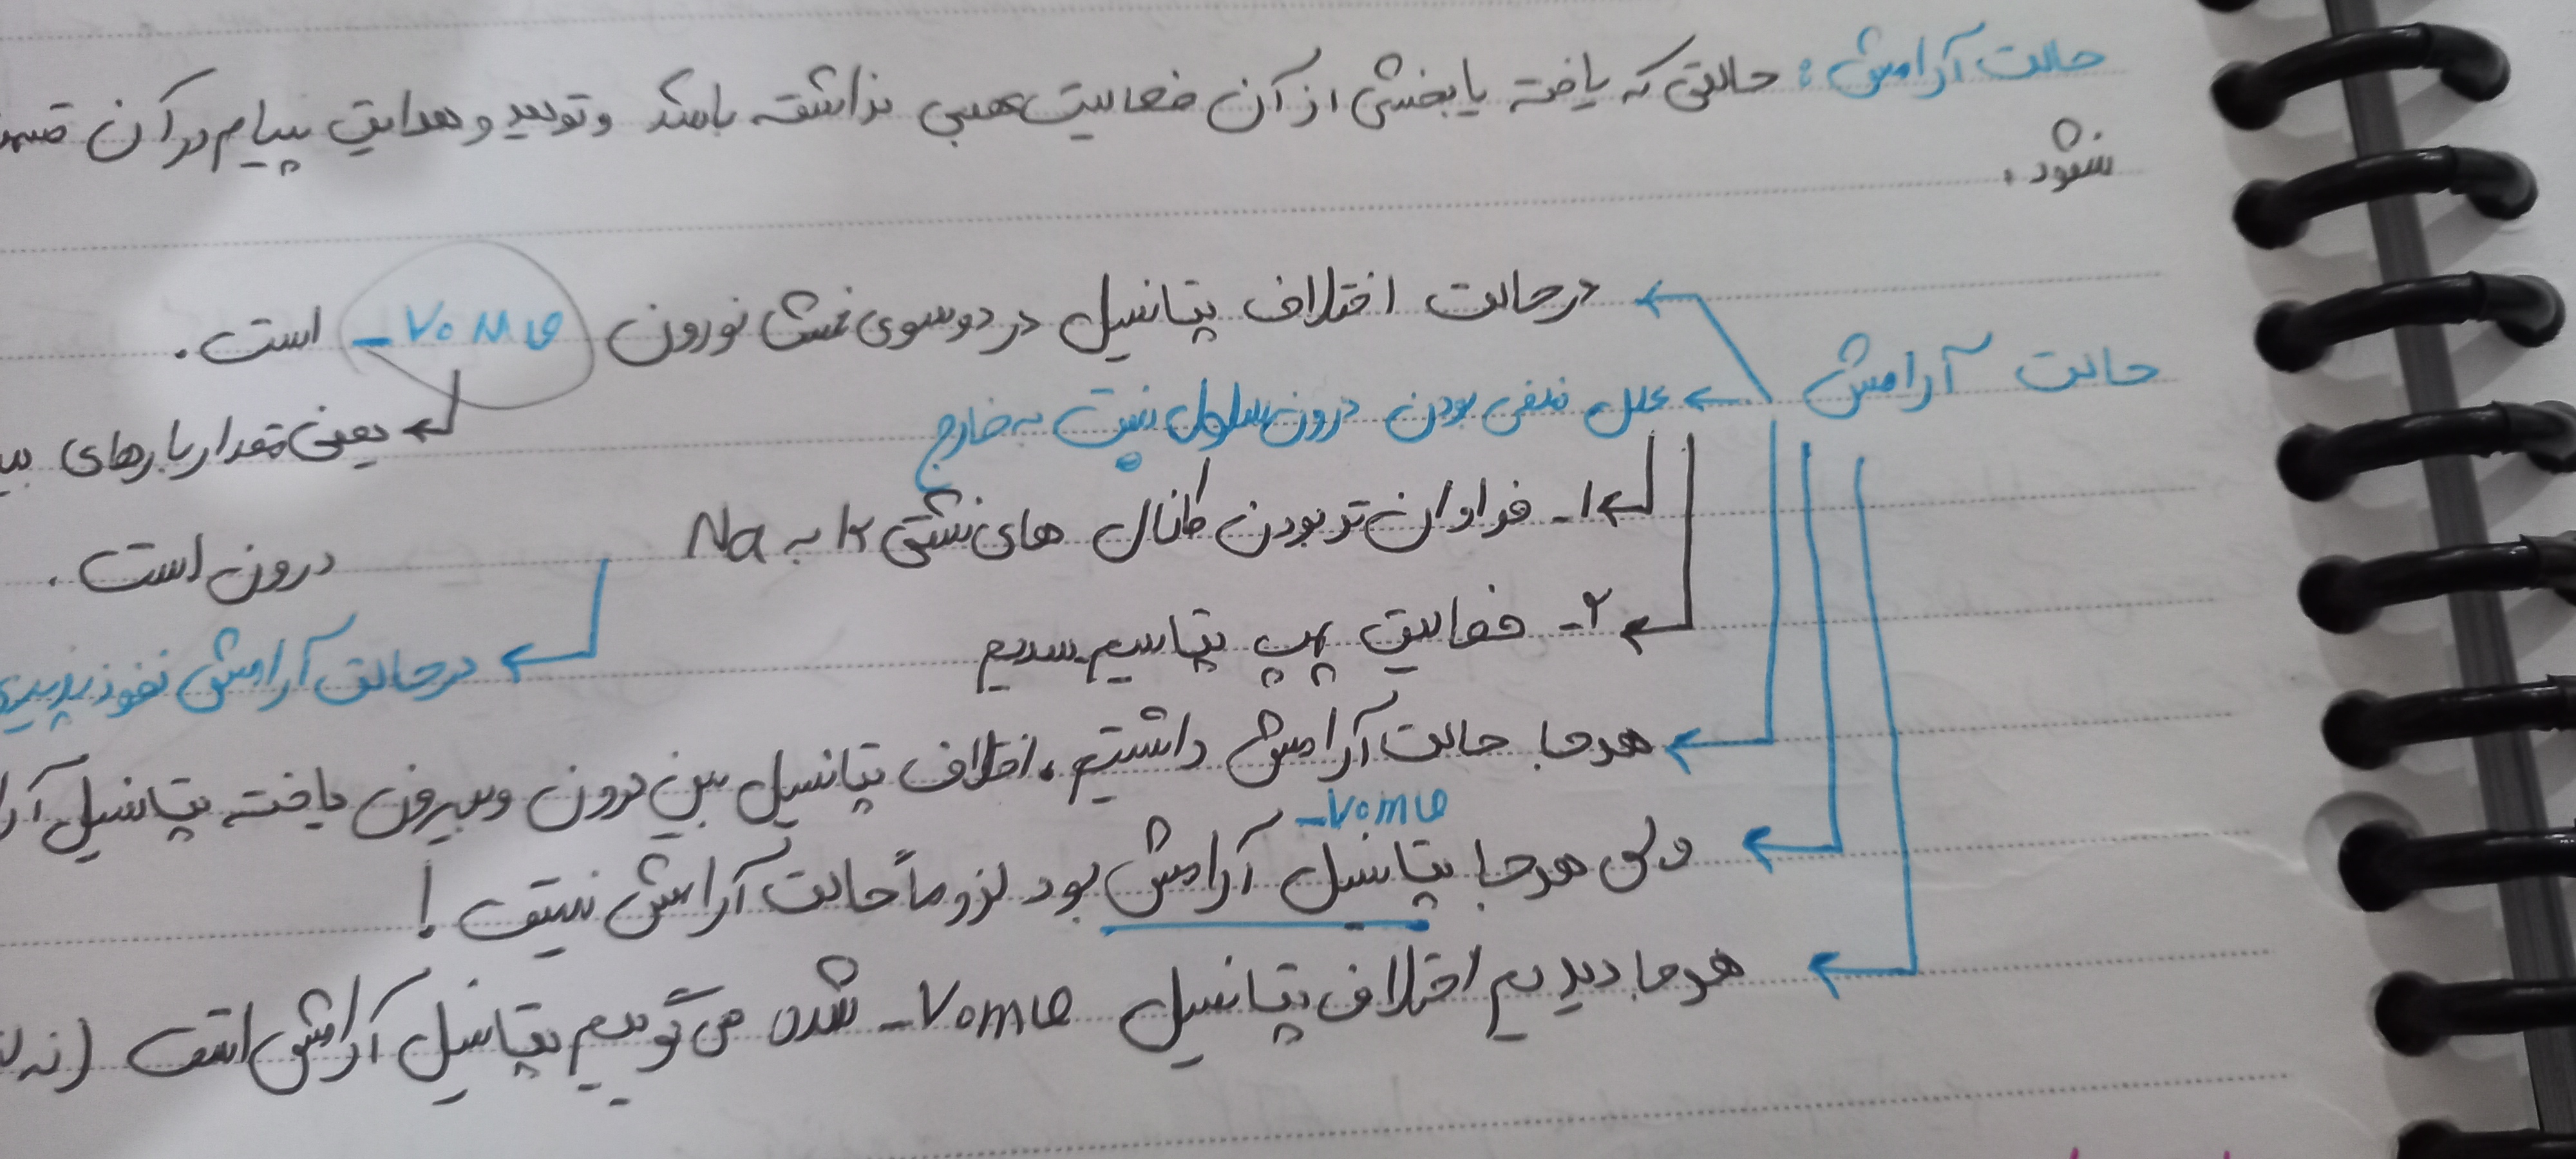 حالت آرامش : حالتی که یاخته یا بخشی از آن فعالیت عصبی نداشته باشد و تولید و هدایت پیام در آن
نشود .
در حالت اختلاف پتانسیل در دو سوی غشا نورون -۷۰ mv است .
حالت آرامش
علل منفی بودن درون سلول نسبت به خارج
یعنی مقدار بارهای
۱- فراوان تر بودن کانال های نشتی K به Na
درون است .
۲- فعالیت پمپ پتاسیم سدیم
در حالت آرامش نفوذپذیری
هرجا حالت آرامش داشتیم ، اختلاف پتانسیل بین درون و بیرون یاخته پتانسیل
-۷۰mv
ولی هرجا پتانسیل آرامش بود لزوماً حالت آرامش نیست !
هرجا دیدیم اختلاف پتانسیل -۷۰mv شده می گوییم پتانسیل آرامش است (نه